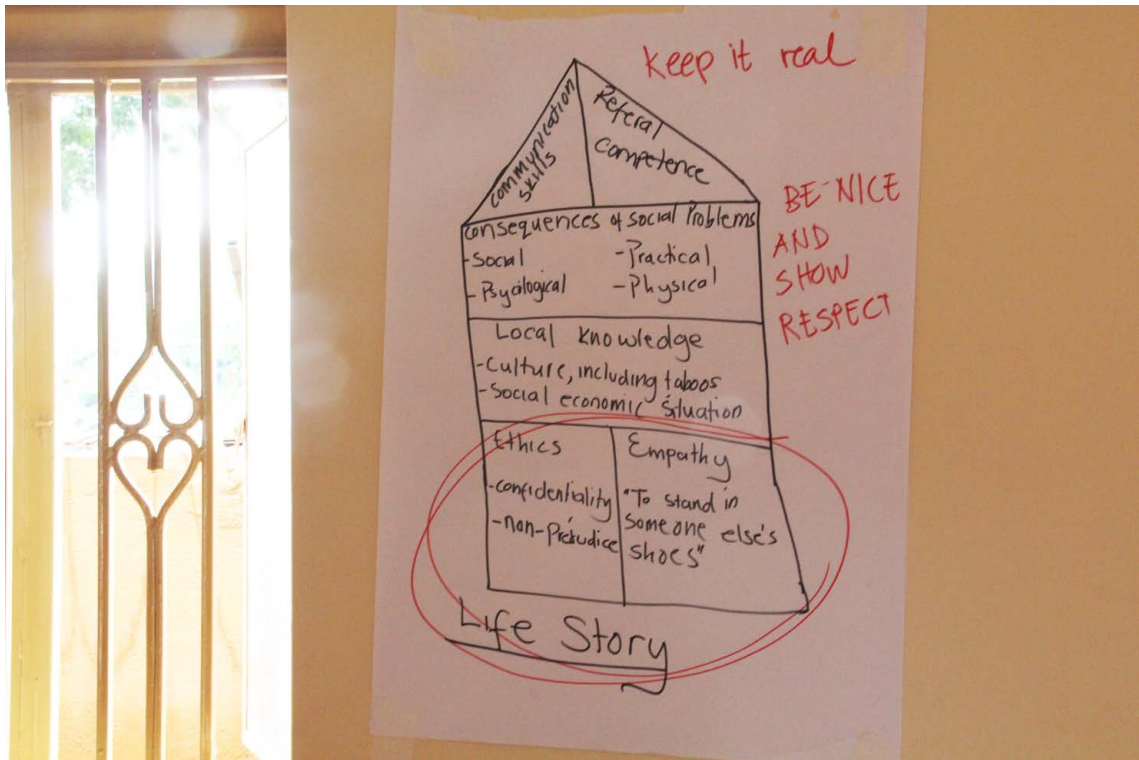 keep it real
communication
skills
Referal
competence
BE NICE
AND
SHOW
RESPECT
Consequences of social Problems
-Social
-Practical
-Psycilogical
-Physical
Local knowledge
-Culture, including taboos
-Social economic situation
Ethics
-confidentiality
-non-Prejudice
Empathy
"To stand in
someone else's
shoes"
Life Story